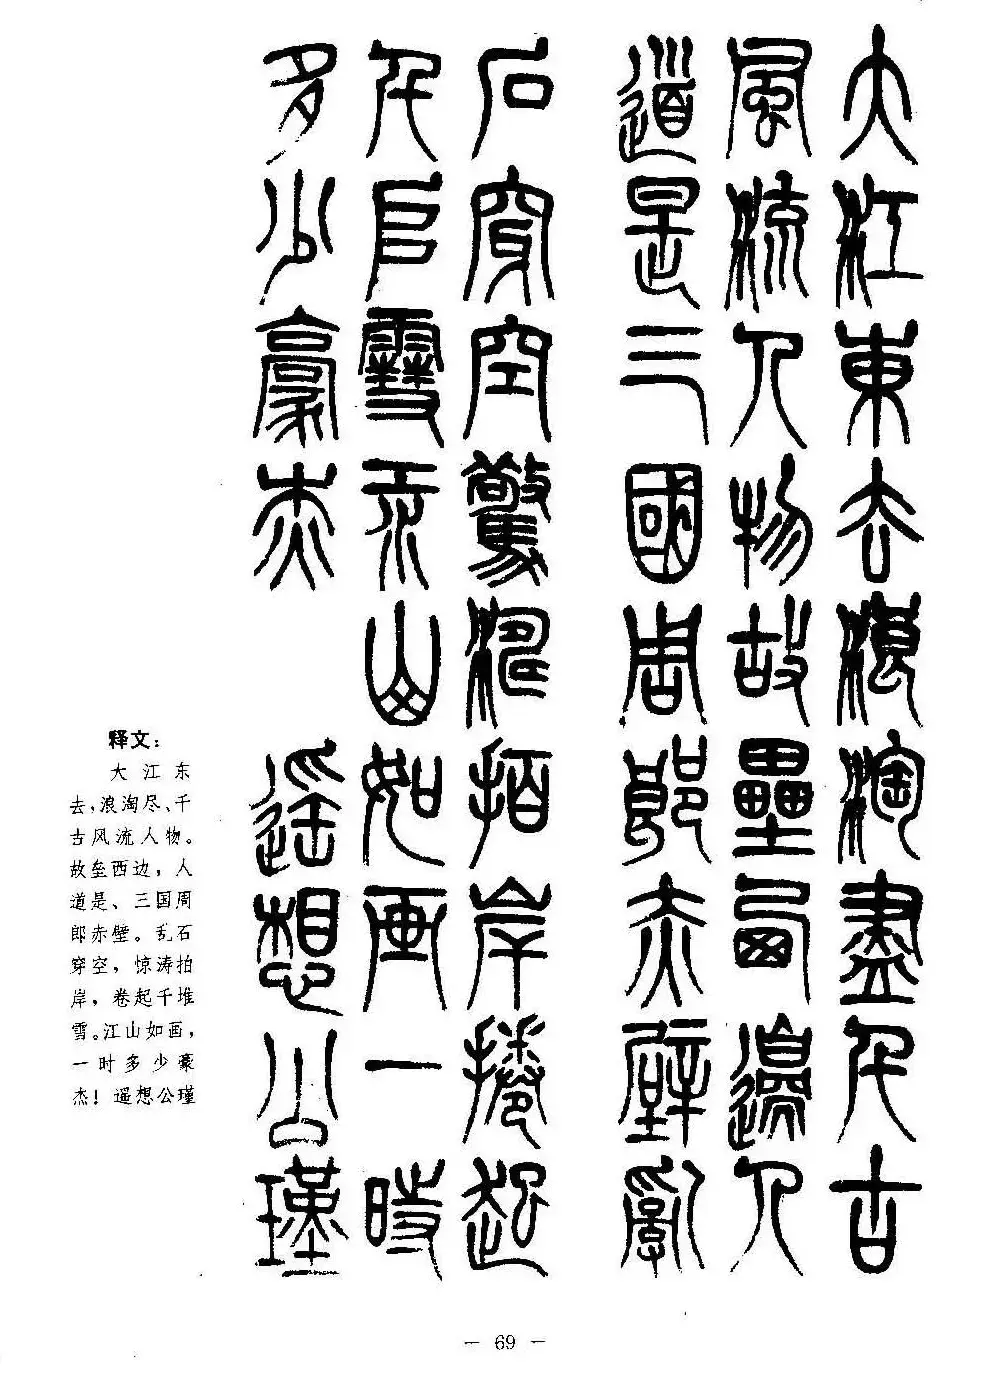 大江東去浪淘盡千古
風流人物故壘西邊人
道是三國周郎赤壁亂
石穿空驚濤拍岸捲起
千堆雪江山如画一時
多少豪杰 遥想公瑾
释文：
大江东
去，浪淘尽、千
古风流人物。
故垒西边，人
道是、三国周
郎赤壁。乱石
穿空，惊涛拍
岸，卷起千堆
雪。江山如画，
一时多少豪
杰！遥想公瑾
— 69 —